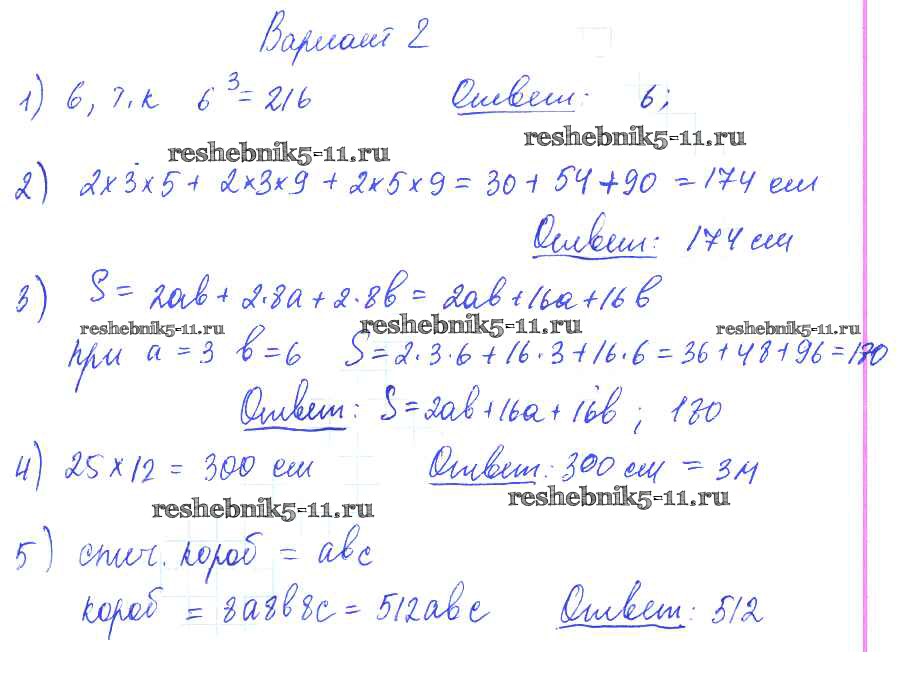 Вариант 2
1) 6, т.к 6³ = 216 Ответ: 6;
reshebnik5-11.ru reshebnik5-11.ru
2) 2×3×5 + 2×3×9 + 2×5×9 = 30 + 54 + 90 = 174 см
Ответ: 174 см
3) S = 2ab + 2·8a + 2·8b = 2ab + 16a + 16b
reshebnik5-11.ru reshebnik5-11.ru reshebnik5-11.ru
при a = 3 b = 6 S = 2·3·6 + 16·3 + 16·6 = 36 + 48 + 96 = 180
Ответ: S = 2ab + 16a + 16b ; 180
4) 25 × 12 = 300 см Ответ: 300 см = 3 м
reshebnik5-11.ru reshebnik5-11.ru
5) спич. короб = abc
короб = 8a8b8c = 512abc Ответ: 512